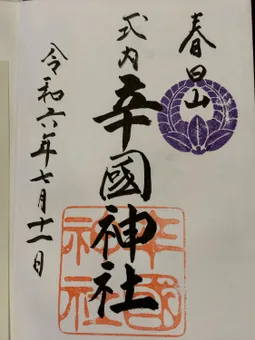 春日山
式内
辛國神社
令和六年七月十一日
辛國
神社